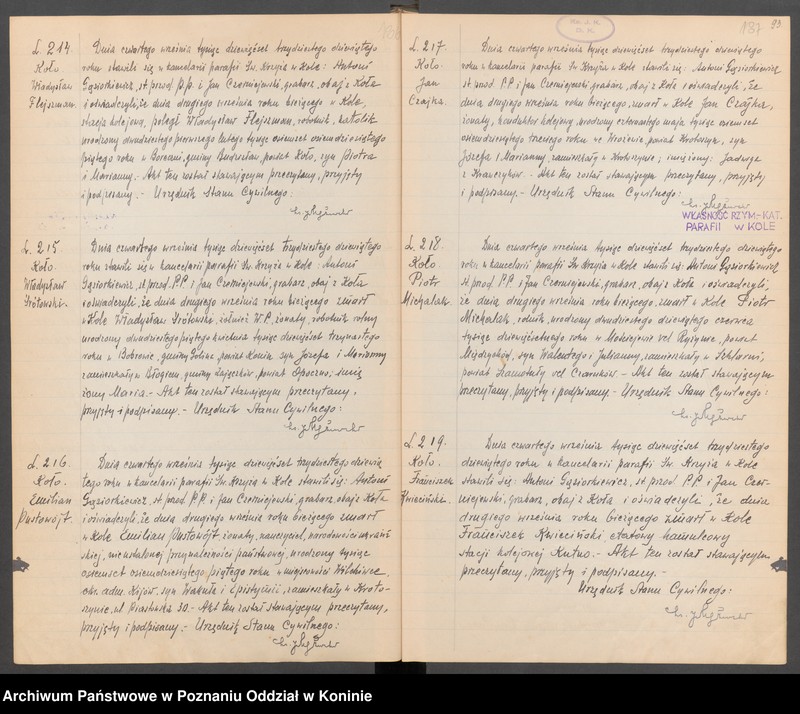 L. 214.
Koło
Władysław
Flejszman.
Dnia czwartego września tysiąc dziewięćset trzydziestego dziewiątego
roku stawili się w kancelarii parafii Św. Krzyża w Kole: Antoni
Gąsiorkiewicz, st. przod. P.P. i Jan Czerniejewski, grabarz, obaj z Koła
i oświadczyli, że dnia drugiego września roku bieżącego w Kole,
stacja kolejowa, poległ Władysław Flejszman, robotnik, katolik
urodzony dwudziestego pierwszego lutego tysiąc osiemset osiemdziesiątego
piątego roku w gminy Budzisław, powiat Koło, syn Piotra
i Marianny. Akt ten został stawającym przeczytany, przyjęty
i podpisany. - Urzędnik Stanu Cywilnego:
L. 215.
Koło.
Władysław
Grótowski.
Dnia czwartego września tysiąc dziewięćset trzydziestego dziewiątego
roku stawili się w kancelarii parafii Św. Krzyża w Kole: Antoni
Gąsiorkiewicz, st. przod. P.P. i Jan Czerniejewski, grabarz, obaj z Koła
i oświadczyli, że dnia drugiego września roku bieżącego zmarł
w Kole Władysław Grótowski, żołnierz W.P., żonaty, robotnik rolny
urodzony dwudziestego piątego kwietnia tysiąc dziewięćset trzynastego
roku w Bobrowie, gminy Golina, powiat Konin syn Józefa i Marianny
zamieszkały w gminy powiat Opoczno; imię
żony Maria. - Akt ten został stawającym przeczytany,
przyjęty i podpisany. - Urzędnik Stanu Cywilnego:
L. 216.
Koło.
Emilian
Pustowójt.
Dnia czwartego września tysiąc dziewięćset trzydziestego dziewią-
tego roku w kancelarii parafii Św. Krzyża w Kole stawili się: Antoni
Gąsiorkiewicz, st. przod. P.P. i Jan Czerniejewski, grabarz, obaj z Koła
i oświadczyli, że dnia drugiego września roku bieżącego zmarł
w Kole Emilian Pustowójt, żonaty, nauczyciel, narodowości ukraiń-
skiej, nieustalonej przynależności państwowej, urodzony tysiąc
osiemset osiemdziesiątego piątego roku w miejscowości
Kijow. syn i zamieszkały w Kroto-
szynie, ul. Piastowska 30. - Akt ten został stawającym przeczytany,
przyjęty i podpisany. - Urzędnik Stanu Cywilnego:
187
93
L. 217.
Koło.
Jan
Czajka.
Dnia czwartego września tysiąc dziewięćset trzydziestego dziewiątego
roku w kancelarii parafii Św. Krzyża w Kole stawili się: Antoni Gąsiorkiewicz
st. przod. P.P. i Jan Czerniejewski, grabarz, obaj z Koła i oświadczyli, że
dnia drugiego września roku bieżącego, zmarł w Kole Jan Czajka,
żonaty, konduktor kolejowy, urodzony czternastego maja tysiąc osiemset
osiemdziesiątego trzeciego roku we powiat Krotoszyn, syn
Józefa i Marianny, zamieszkały w Krotoszynie; imię żony: Jadwiga
z Krawczyków. - Akt ten został stawającym przeczytany, przyjęty
i podpisany. - Urzędnik Stanu Cywilnego:
WŁASNOŚĆ RZYM.-KAT.
PARAFII w KOLE
L. 218.
Koło.
Piotr
Michalak.
Dnia czwartego września tysiąc dziewięćset trzydziestego dziewiątego
roku w kancelarii parafii Św. Krzyża w Kole stawili się: Antoni Gąsiorkiewicz
st. przod. P.P. i Jan Czerniejewski, grabarz, obaj z Koła i oświadczyli,
że dnia drugiego września roku bieżącego zmarł w Kole Piotr
Michalak, rolnik, urodzony dwudziestego dziewiątego czerwca
tysiąc dziewięćsetnego roku w powiat
Międzychód, syn Walentego i Julianny, zamieszkały w
powiat Szamotuły vel Czarnków. - Akt ten został stawającym
przeczytany, przyjęty i podpisany. - Urzędnik Stanu Cywilnego:
L. 219.
Koło.
Franciszek
Kwieciński.
Dnia czwartego września tysiąc dziewięćset trzydziestego
dziewiątego roku w kancelarii parafii Św. Krzyża w Kole
stawili się: Antoni Gąsiorkiewicz, st. przod. P.P. i Jan Czer-
niejewski, grabarz, obaj z Koła i oświadczyli, że dnia
drugiego września roku bieżącego zmarł w Kole
Franciszek Kwieciński, etatowy hamulcowy
stacji kolejowej Kutno. - Akt ten został stawającym
przeczytany, przyjęty i podpisany. -
Urzędnik Stanu Cywilnego:
Archiwum Państwowe w Poznaniu Oddział w Koninie